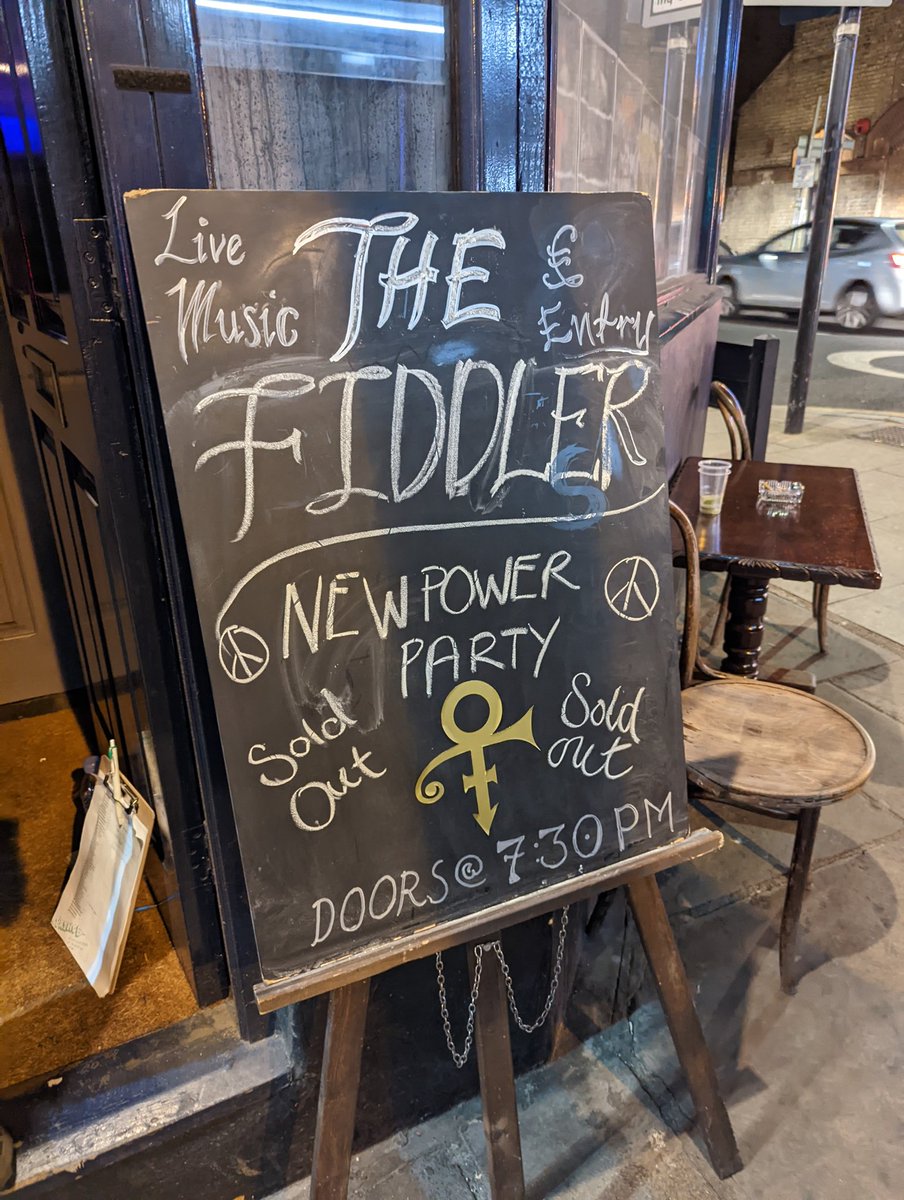 Live
Music
THE
££
Entry
FIDDLER
NEW POWER
PARTY
Sold
Out
Sold
out
DOORS @ 7:30 PM